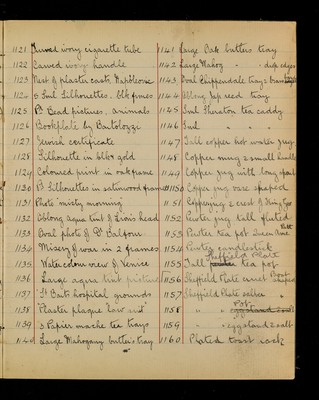 1121 Turned ivory cigarette tube
1122 Carved ivory handle
1123 Nest of plaster casts Napoleonic
1124 6 Sml Silhouettes. blk frmes
1125 Pr Bead pictures. animals
1126 Bookplate by Bartolozzi
1127 Jewish certificate
1128 Silhouette in blk & gold
1129 Coloured print in oak frame
1130 Pr Silhouettes in satinwood frames
1131 Photo "misty morning"
1132 Oblong aqua tint of Lion's head
1133 Oval photo of Balfour
1134 Misery of war in 2 frames
1135 Water colour view of Venice
1136 Large aqua tint
1137 "St Barts hospital grounds
1138 Plaster plaque "Law suit"
1139 3 Papier mache tea trays
1140 Large Mahogany butler's tray
1141 Large Oak butlers tray
1142 Large Mahog " " deep edges
1143 Oval Chippendale tray 2 brass handles
1144 Oblong seed tray
1145 Sml Sheraton tea caddy
1146 Sml " " "
1147 Tall copper hot water jug
1148 Copper mug 2 small handles
1149 Copper jug with long spout
1150 Copper jug vase shaped
1151 Copper jug & crest of King Geo
1152 Pewter jug tall fluted
1153 Pewter tea pot Queen Anne
1154 Pewter candlestick
1155 Tall Sheffield Plate tea pot
1156 Sheffield Plate cruet Boat shaped
1157 Sheffield Plate salver
1158 " " Pot
1159 " " egg stand & salt
1160 Plated toast rack